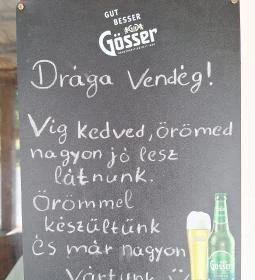 GUT
BESSER
Gösser
Drága Vendég!
Víg kedved, örömed
nagyon jó lesz
látnunk.
Örömmel
készültünk
És már nagyon
Vártunk
Gösser